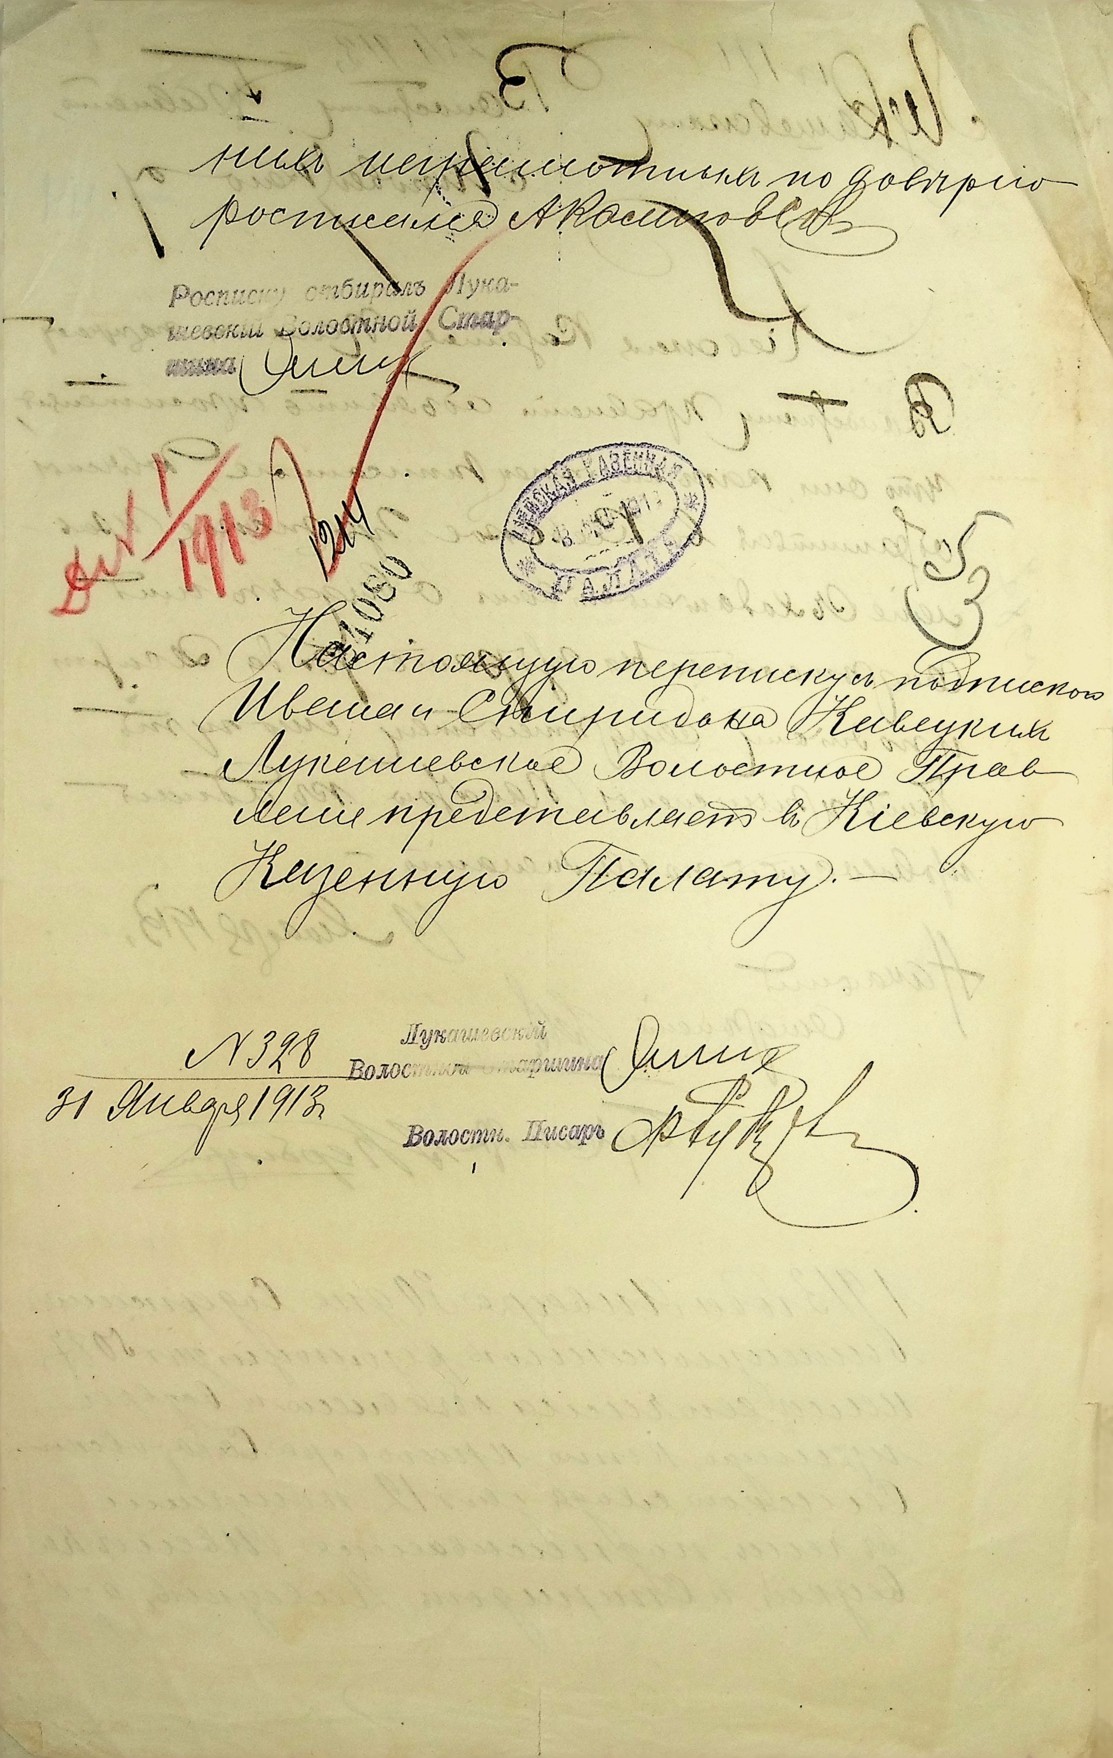 нихъ неграмотныхъ по доверiю
росписался
Росписку отбиралъ Лука-
шевскій Волостной Стар-
шина
1
1913
1214
КІЕВСКАЯ КАЗЕННАЯ
ПАЛАТА
53
Настоящую переписку съ подпискою
Ивана и Спиридона Кавецкихъ
Лукашевское Волостное Прав
ленiе представляетъ въ Кiевскую
Казенную Палату. —
N 328
31 Января 1913 г.
Лукашевскій
Волостной Старшина
Волостн. Писарь